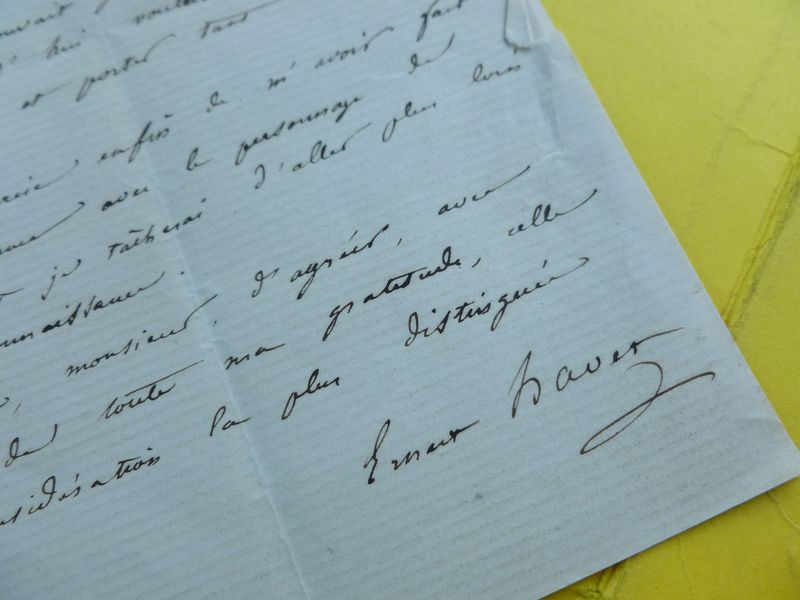 ouvait
hui voulu
et porter tant
enfin de m'avoir fait
avec le personnage de
je tâcherai d'aller plus loin
connaissance.
, monsieur, d'agréer, avec
de toute ma gratitude, celle
considération la plus distinguée
Ernest Havet